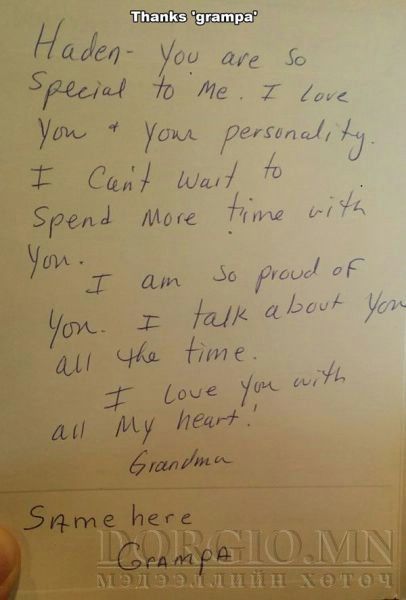 Thanks 'grampa'
Haden- You are so
special to Me. I love
You + Your personality.
I Can't Wait to
Spend More time with
You.
I am so proud of
You. I talk about You
all the time.
I Love You with
all My heart!
Grandma
SAme here
GrAmpA
DORGIO.MN
МЭДЭЭЛЛИЙН ХӨТӨЧ